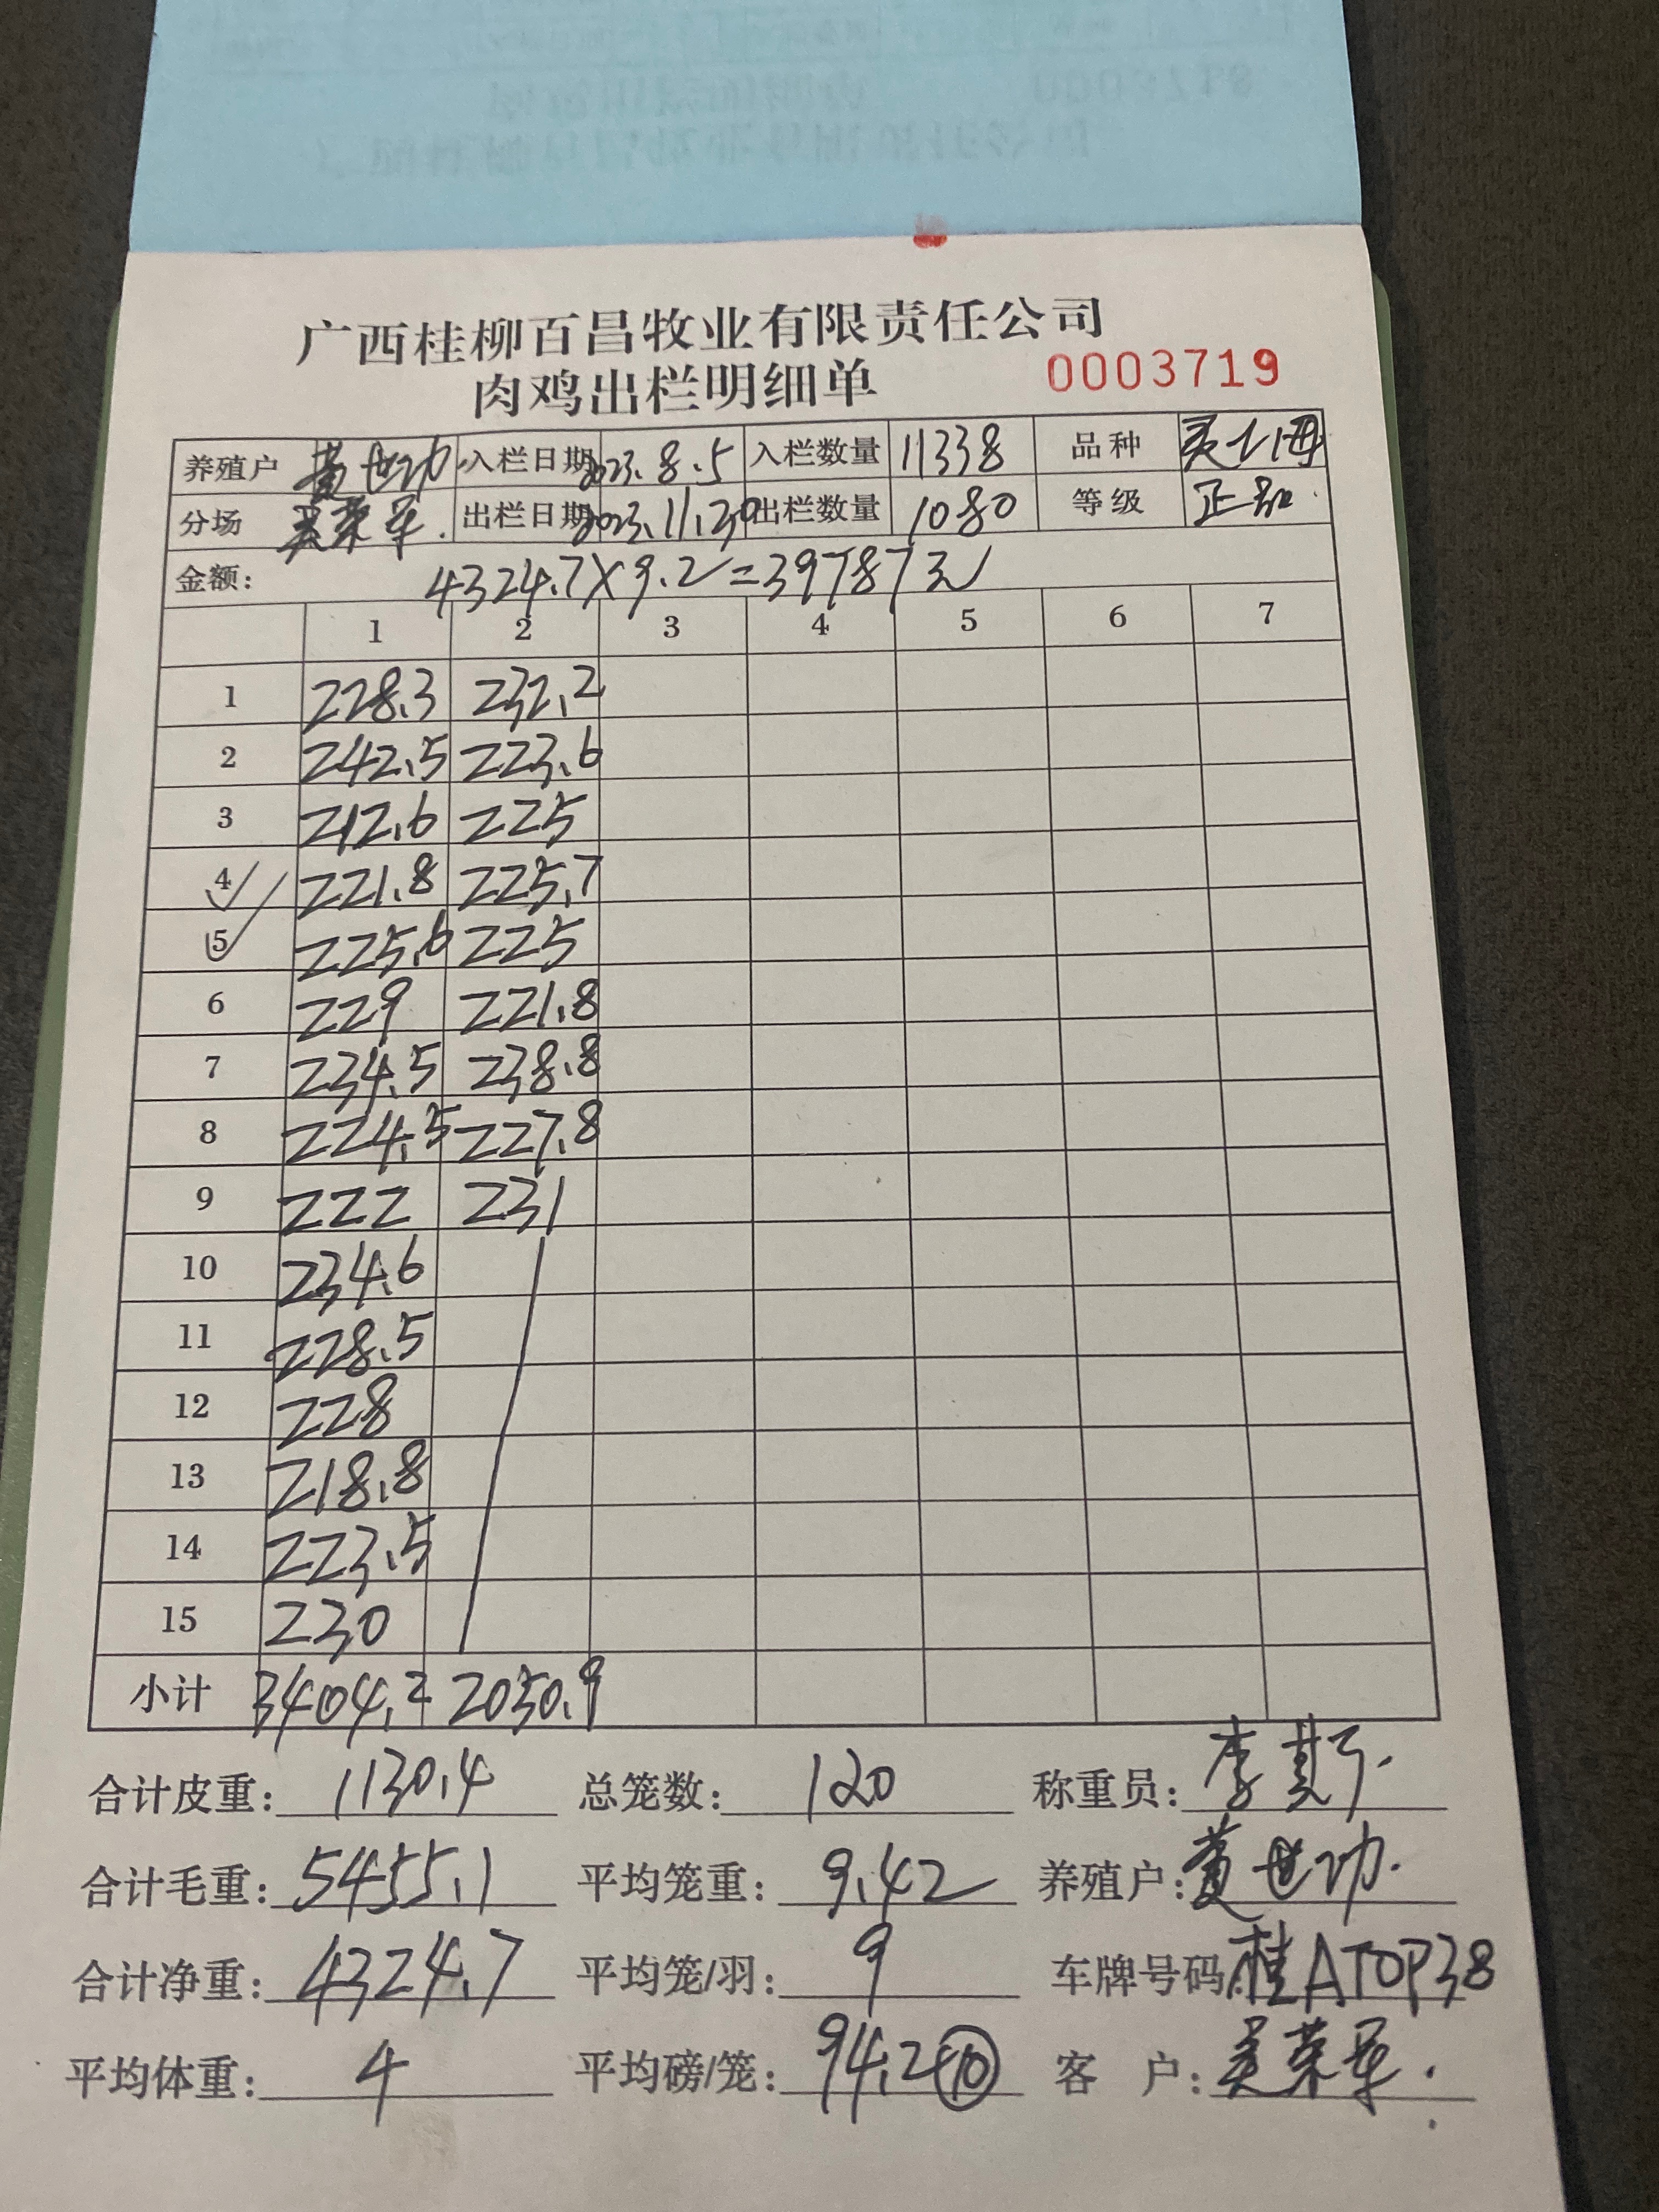 广西桂柳百昌牧业有限责任公司
肉鸡出栏明细单 0003719
养殖户 黄世功 入栏日期 2023.8.5 入栏数量 11338 品种
分场 吴荣军. 出栏日期 2023.11.30 出栏数量 1080 等级 正品
金额: 4324.7×9.2=39787元
1 2 3 4 5 6 7
1 228.3 232.2
2 242.5 223.6
3 212.6 225
4 221.8 225.7
5 225.6 225
6 229 221.8
7 234.5 238.8
8 224.5 227.8
9 222 231
10 234.6
11 228.5
12 228
13 218.8
14 223.5
15 230
小计 3404.2 2050.9
合计皮重: 1130.4 总笼数: 120 称重员: 李
合计毛重: 5455.1 平均笼重: 9.42 养殖户: 黄世功.
合计净重: 4324.7 平均笼/羽: 9 车牌号码: 桂AT0P38
平均体重: 4 平均磅/笼: 94.2 ⑩ 客户: 吴荣军.